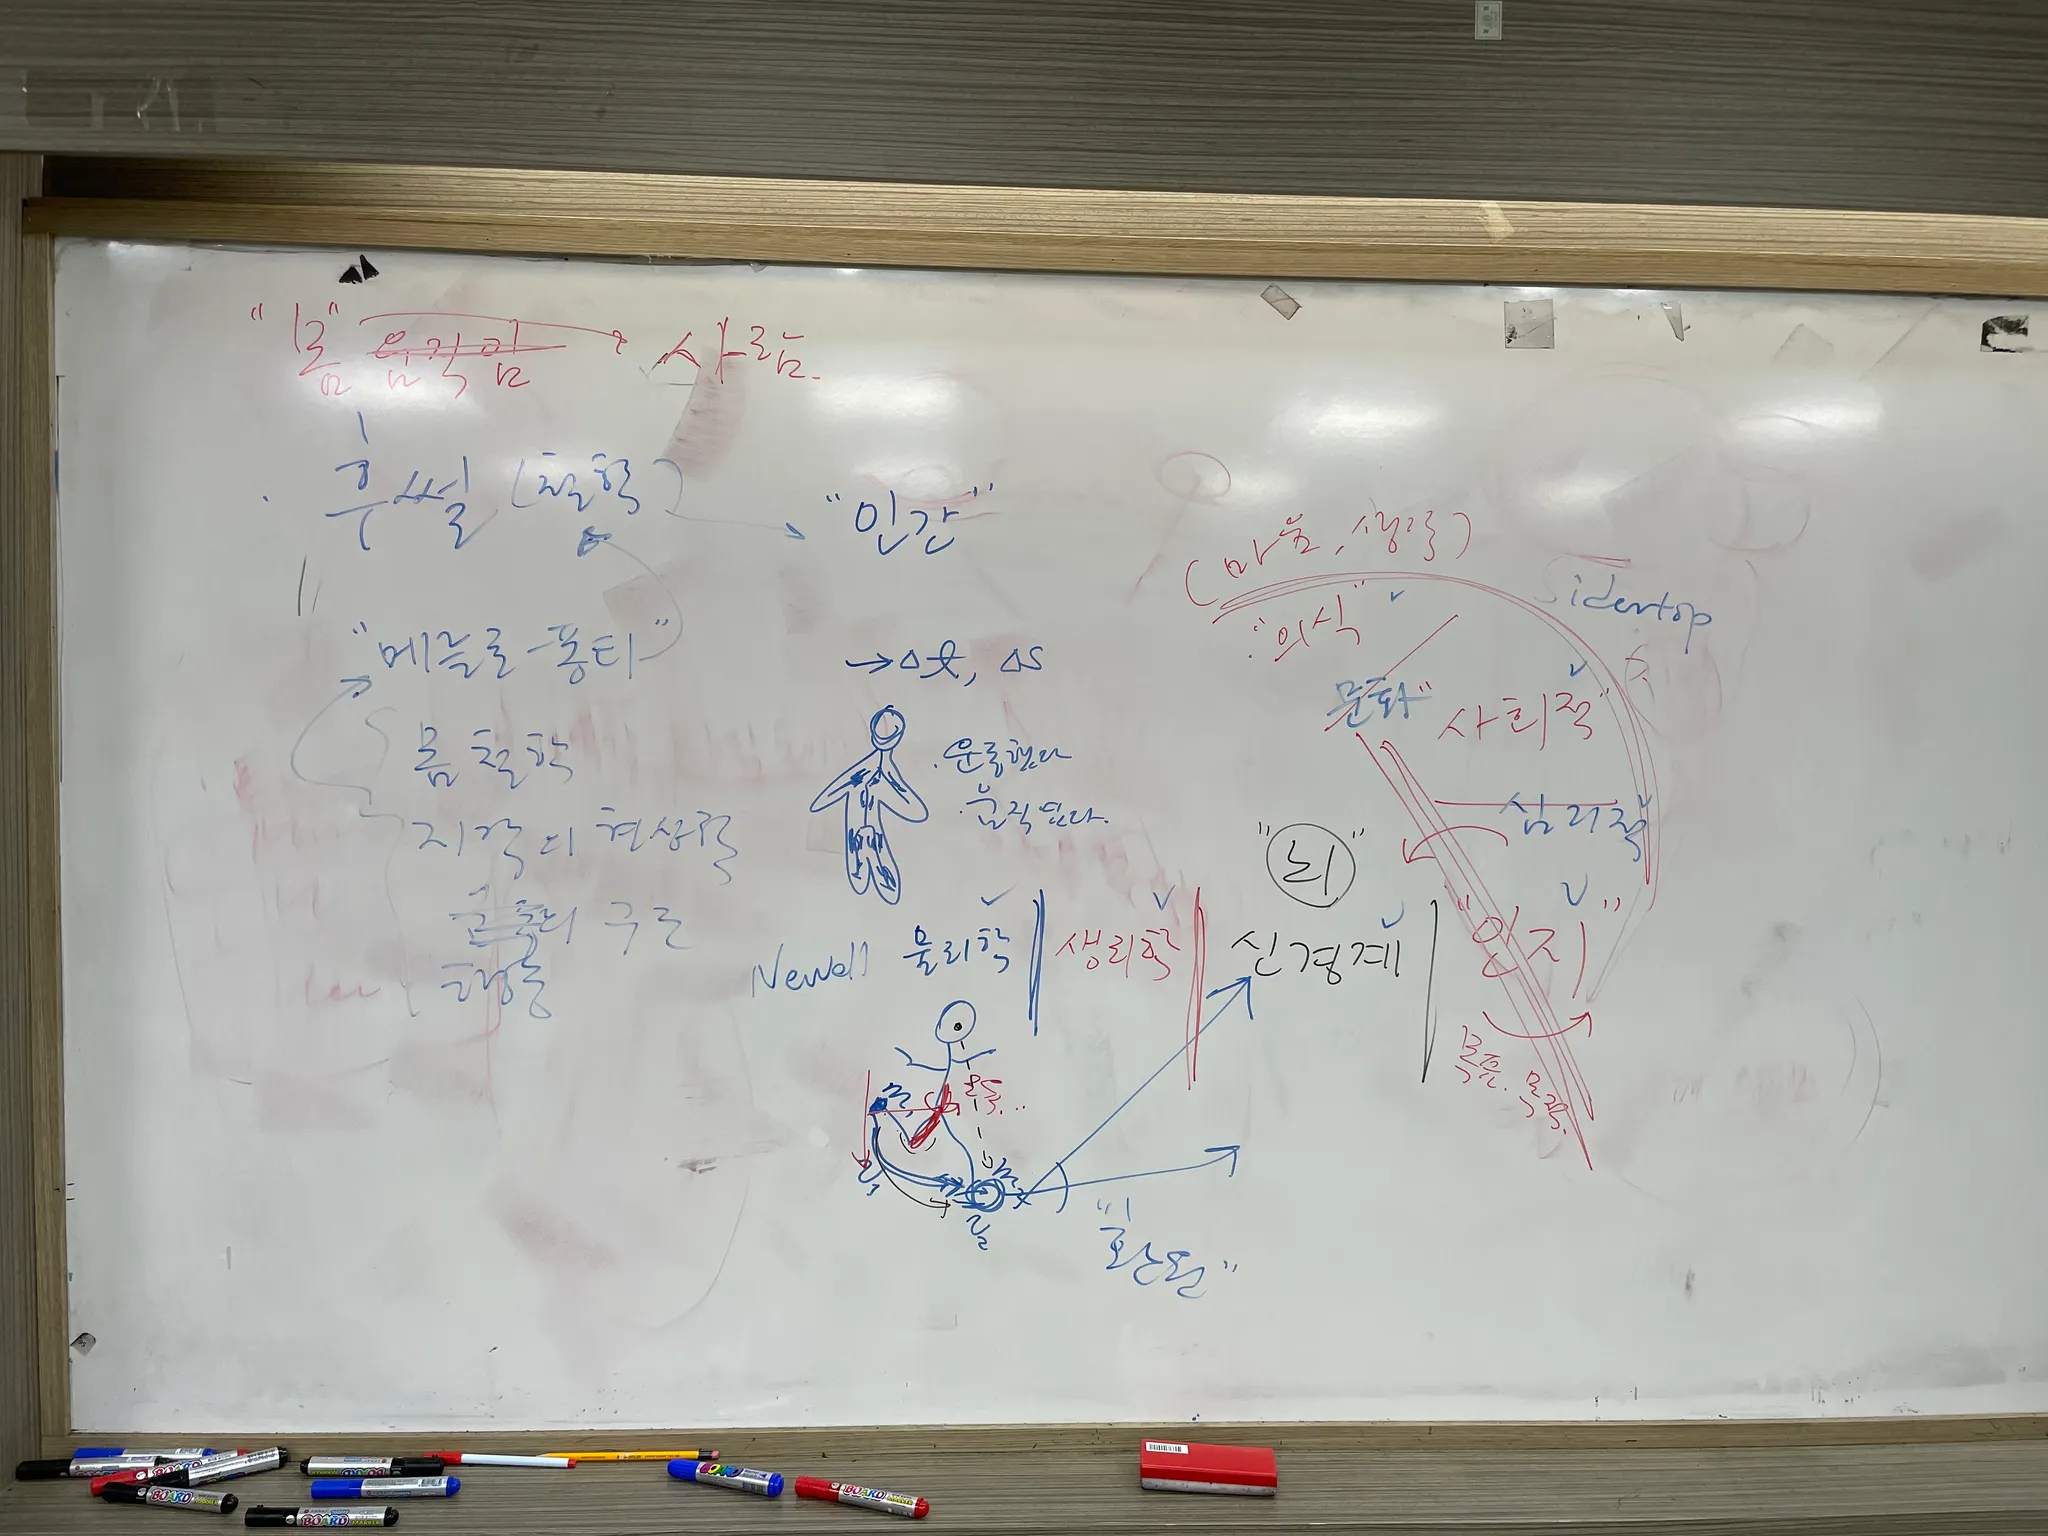 "몸" 움직임 사람.
후쎌 (철학)
"인간"
(마음, 생각)
"의식"
"메를로-퐁티"
→ Δt, Δs
문화"
사회적"
몸 철학
· 운동했다
· 움직였다.
심리적
지각의 현상학
"뇌"
행동의 구조
Newell 물리학 생리학 신경계 "인지"
목표. 목적.
"환원"
BOARD
BOARD
BOARD
BOARD